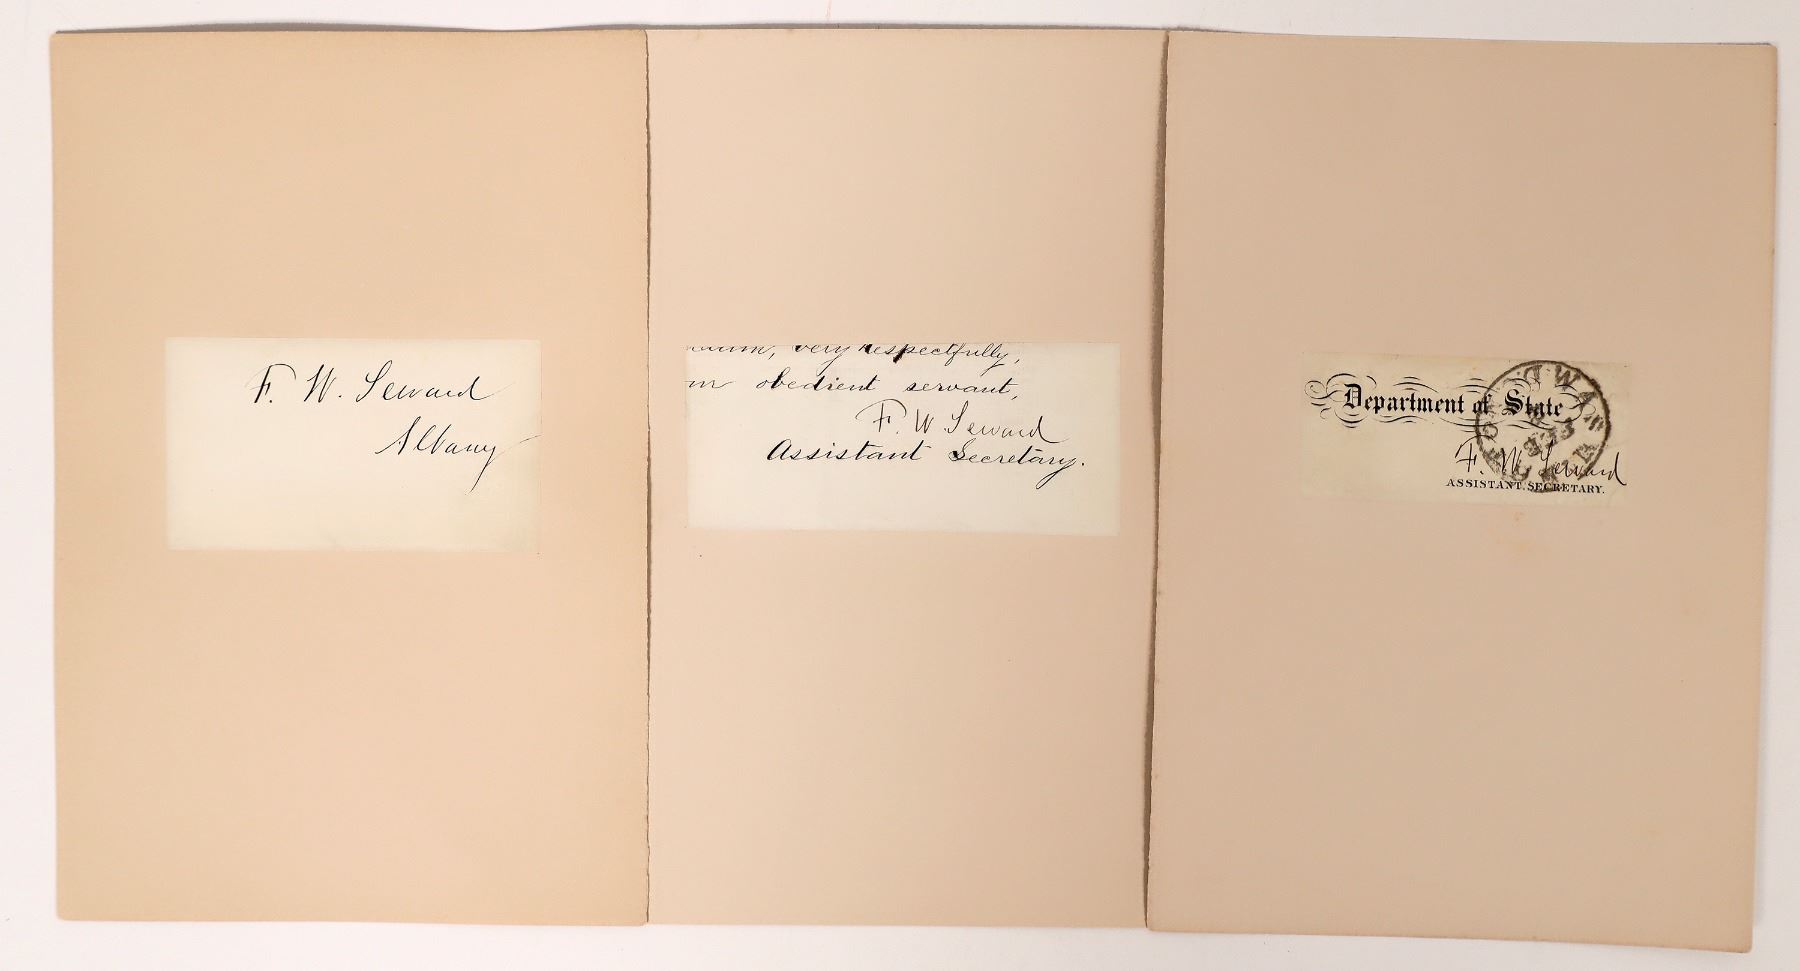 F. W. Seward
Albany
very respectfully,
obedient servant,
F. W. Seward
Assistant Secretary.
Department of State
F. W. Seward
ASSISTANT SECRETARY.